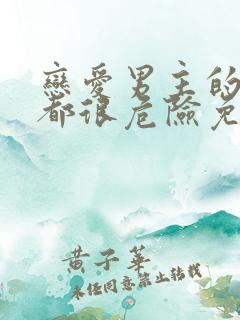 戀愛男主的
都很危險免
黃子華
未經同意禁止轉載